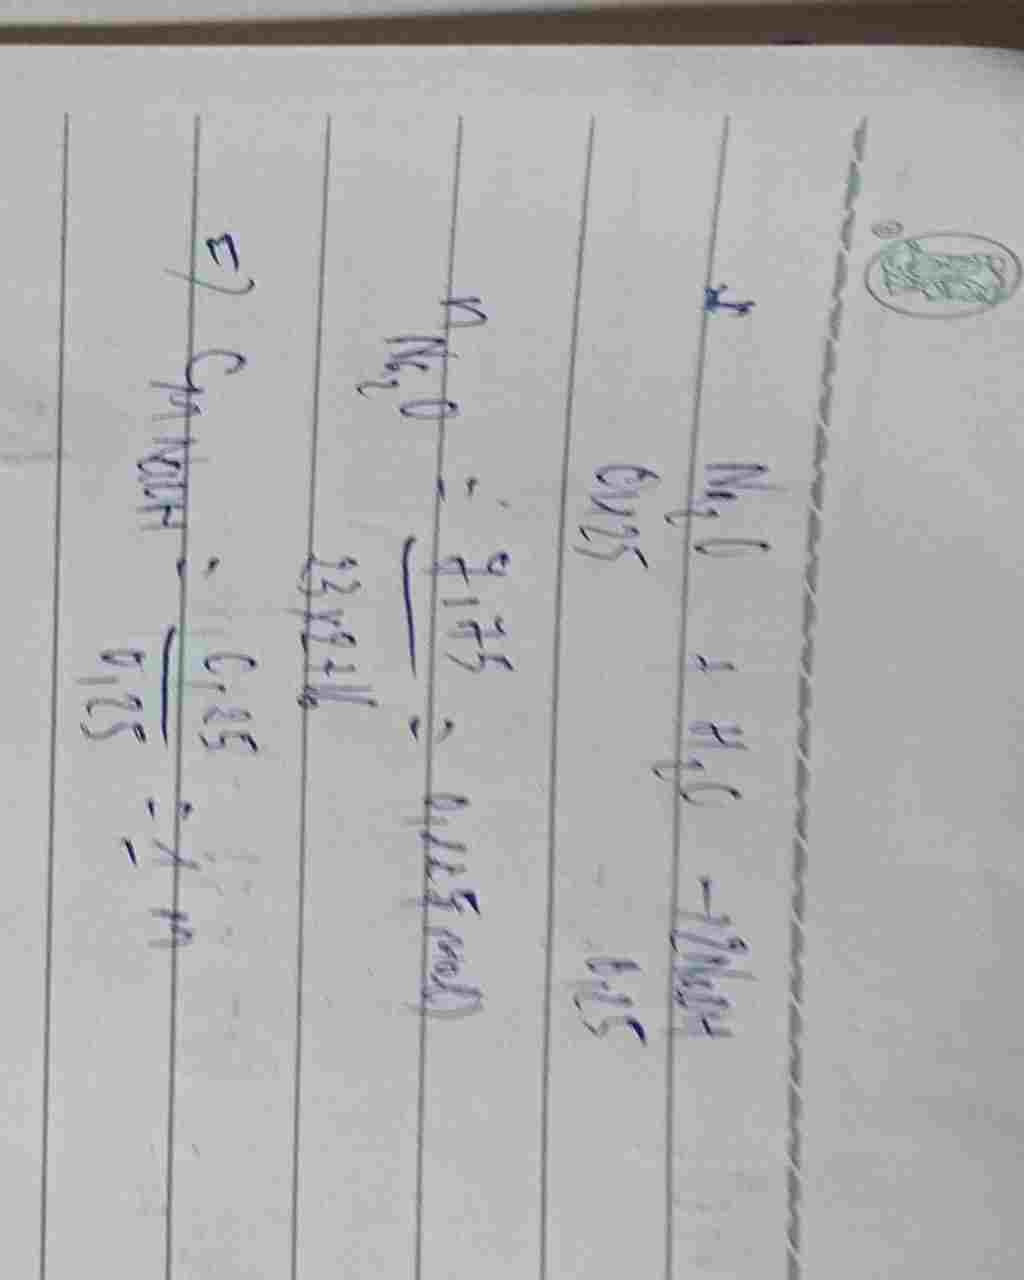 Na2O + H2O → 2NaOH
0,125 0,25
nNa2O = 7,75 / 23x2+16 = 0,125 mol
=> CM NaOH = 0,25 / 0,25 = 1 M